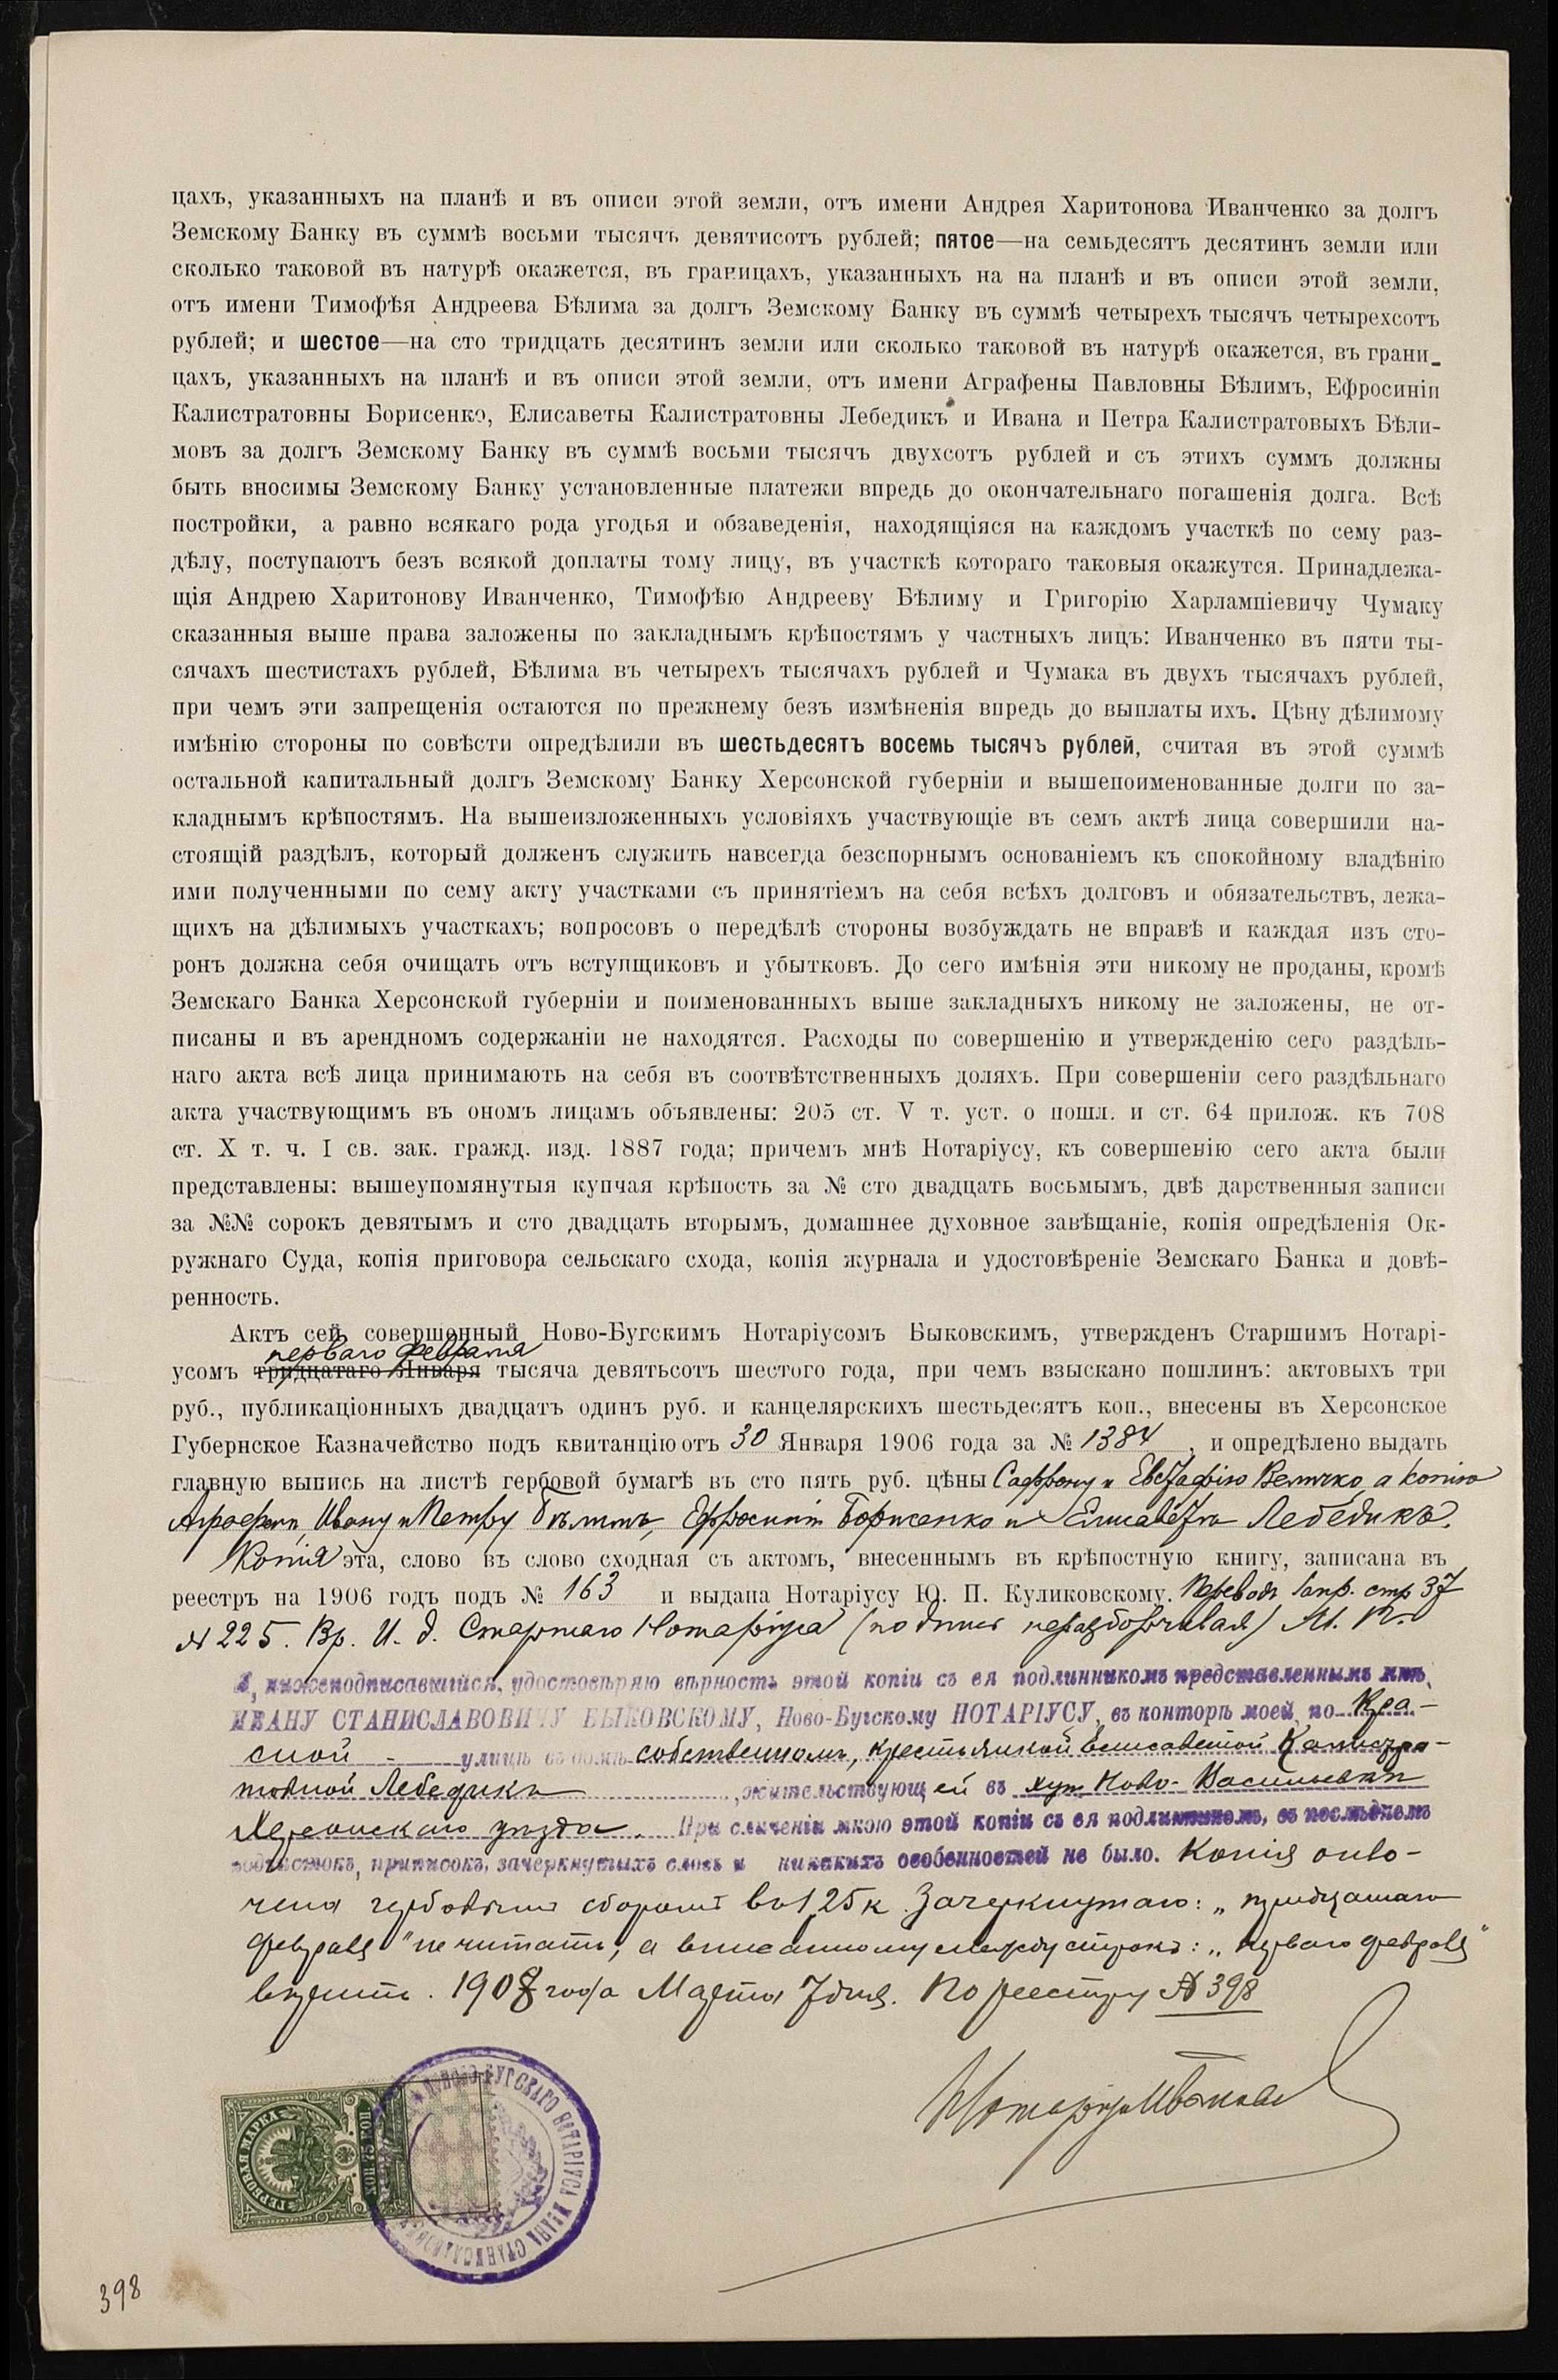 цахъ, указанныхъ на планѣ и въ описи этой земли, отъ имени Андрея Харитонова Иванченко за долгъ
Земскому Банку въ суммѣ восьми тысячъ девятисотъ рублей; пятое—на семьдесятъ десятинъ земли или
сколько таковой въ натурѣ окажется, въ границахъ, указанныхъ на на планѣ и въ описи этой земли,
отъ имени Тимофѣя Андреева Бѣлима за долгъ Земскому Банку въ суммѣ четырехъ тысячъ четырехсотъ
рублей; и шестое—на сто тридцать десятинъ земли или сколько таковой въ натурѣ окажется, въ грани-
цахъ, указанныхъ на планѣ и въ описи этой земли, отъ имени Аграфены Павловны Бѣлимъ, Ефросиніи
Калистратовны Борисенко, Елисаветы Калистратовны Лебедикъ и Ивана и Петра Калистратовыхъ Бѣли-
мовъ за долгъ Земскому Банку въ суммѣ восьми тысячъ двухсотъ рублей и съ этихъ суммъ должны
быть вносимы Земскому Банку установленные платежи впредь до окончательнаго погашенія долга. Всѣ
постройки, а равно всякаго рода угодья и обзаведенія, находящіяся на каждомъ участкѣ по сему раз-
дѣлу, поступаютъ безъ всякой доплаты тому лицу, въ участкѣ котораго таковыя окажутся. Принадлежа-
щія Андрею Харитонову Иванченко, Тимофѣю Андрееву Бѣлиму и Григорію Харлампіевичу Чумаку
сказанныя выше права заложены по закладнымъ крѣпостямъ у частныхъ лицъ: Иванченко въ пяти ты-
сячахъ шестистахъ рублей, Бѣлима въ четырехъ тысячахъ рублей и Чумака въ двухъ тысячахъ рублей,
при чемъ эти запрещенія остаются по прежнему безъ измѣненія впредь до выплаты ихъ. Цѣну дѣлимому
имѣнію стороны по совѣсти опредѣлили въ шестьдесятъ восемь тысячъ рублей, считая въ этой суммѣ
остальной капитальный долгъ Земскому Банку Херсонской губерніи и вышепоименованные долги по за-
кладнымъ крѣпостямъ. На вышеизложенныхъ условіяхъ участвующіе въ семъ актѣ лица совершили на-
стоящій раздѣлъ, который долженъ служить навсегда безспорнымъ основаніемъ къ спокойному владѣнію
ими полученными по сему акту участками съ принятіемъ на себя всѣхъ долговъ и обязательствъ, лежа-
щихъ на дѣлимыхъ участкахъ; вопросовъ о передѣлѣ стороны возбуждать не вправѣ и каждая изъ сто-
ронъ должна себя очищать отъ вступщиковъ и убытковъ. До сего имѣнія эти никому не проданы, кромѣ
Земскаго Банка Херсонской губерніи и поименованныхъ выше закладныхъ никому не заложены, не от-
писаны и въ арендномъ содержаніи не находятся. Расходы по совершенію и утвержденію сего раздѣль-
наго акта всѣ лица принимаютъ на себя въ соотвѣтственныхъ доляхъ. При совершеніи сего раздѣльнаго
акта участвующимъ въ ономъ лицамъ объявлены: 205 ст. V т. уст. о пошл. и ст. 64 прилож. къ 708
ст. X т. ч. I св. зак. гражд. изд. 1887 года; причемъ мнѣ Нотаріусу, къ совершенію сего акта были
представлены: вышеупомянутыя купчая крѣпость за № сто двадцать восьмымъ, двѣ дарственныя записи
за №№ сорокъ девятымъ и сто двадцать вторымъ, домашнее духовное завѣщаніе, копія опредѣленія Ок-
ружнаго Суда, копія приговора сельскаго схода, копія журнала и удостовѣреніе Земскаго Банка и довѣ-
ренность.
Актъ сей совершенный Ново-Бугскимъ Нотаріусомъ Быковскимъ, утвержденъ Старшимъ Нотарі-
перваго февраля
усомъ тридцатаго Января тысяча девятьсотъ шестого года, при чемъ взыскано пошлинъ: актовыхъ три
руб., публикаціонныхъ двадцать одинъ руб. и канцелярскихъ шестьдесятъ коп., внесены въ Херсонское
Губернское Казначейство подъ квитанцію отъ 30 Января 1906 года за № 1384, и опредѣлено выдать
главную выпись на листѣ гербовой бумагѣ въ сто пять руб. цѣны Сафрону и Евстафію Величко, а копію
Аграфенѣ, Ивану и Петру Бѣлимъ, Ефросиніи Борисенко и Елисаветѣ Лебедикъ.
Копія эта, слово въ слово сходная съ актомъ, внесеннымъ въ крѣпостную книгу, записана въ
реестръ на 1906 годъ подъ № 163 и выдана Нотаріусу Ю. П. Куликовскому. Переводъ запр. стр 37
№ 225. Вр. И. д. Старшаго Нотаріуса (подпись неразборчивая) М. П.
Я, нижеподписавшійся, удостовѣряю вѣрность этой копіи съ ея подлинникомъ представленнымъ мнѣ,
ИВАНУ СТАНИСЛАВОВИЧУ БЫКОВСКОМУ, Ново-Бугскому НОТАРІУСУ, въ конторѣ моей, по Кра-
сной улицѣ въ домѣ собственномъ, крестьянкой Елисаветой Калистра-
товной Лебедикъ, жительствующей въ хут. Ново-Васильевкѣ
Херсонскаго уѣзда. При сличеніи мною этой копіи съ ея подлинникомъ, въ послѣднемъ
подчистокъ, приписокъ, зачеркнутыхъ словъ и никакихъ особенностей не было. Копія опла-
чена гербовымъ сборомъ въ 1 25 к. Зачеркнутаго: „тридцатаго
февраля" не читать, а вписанному между строкъ: „перваго февраля"
вѣрить. 1908 года Марта 7 дня. По реестру № 398
Нотаріусъ
ГЕРБОВАЯ МАРКА
75 КОП
НОВО-БУГСКАГО НОТАРІУСА ИВАНА СТАНИСЛАВОВИЧА
398